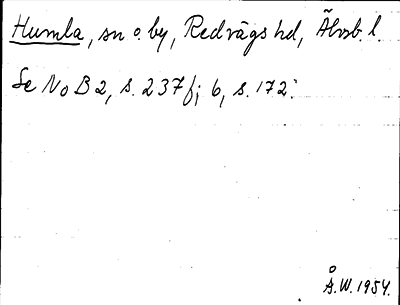 Humla, sn o. by, Redvägs hd, Älvsb. l.
Se NoB 2, s. 237 f; 6, s. 172.
Å.W. 1954.